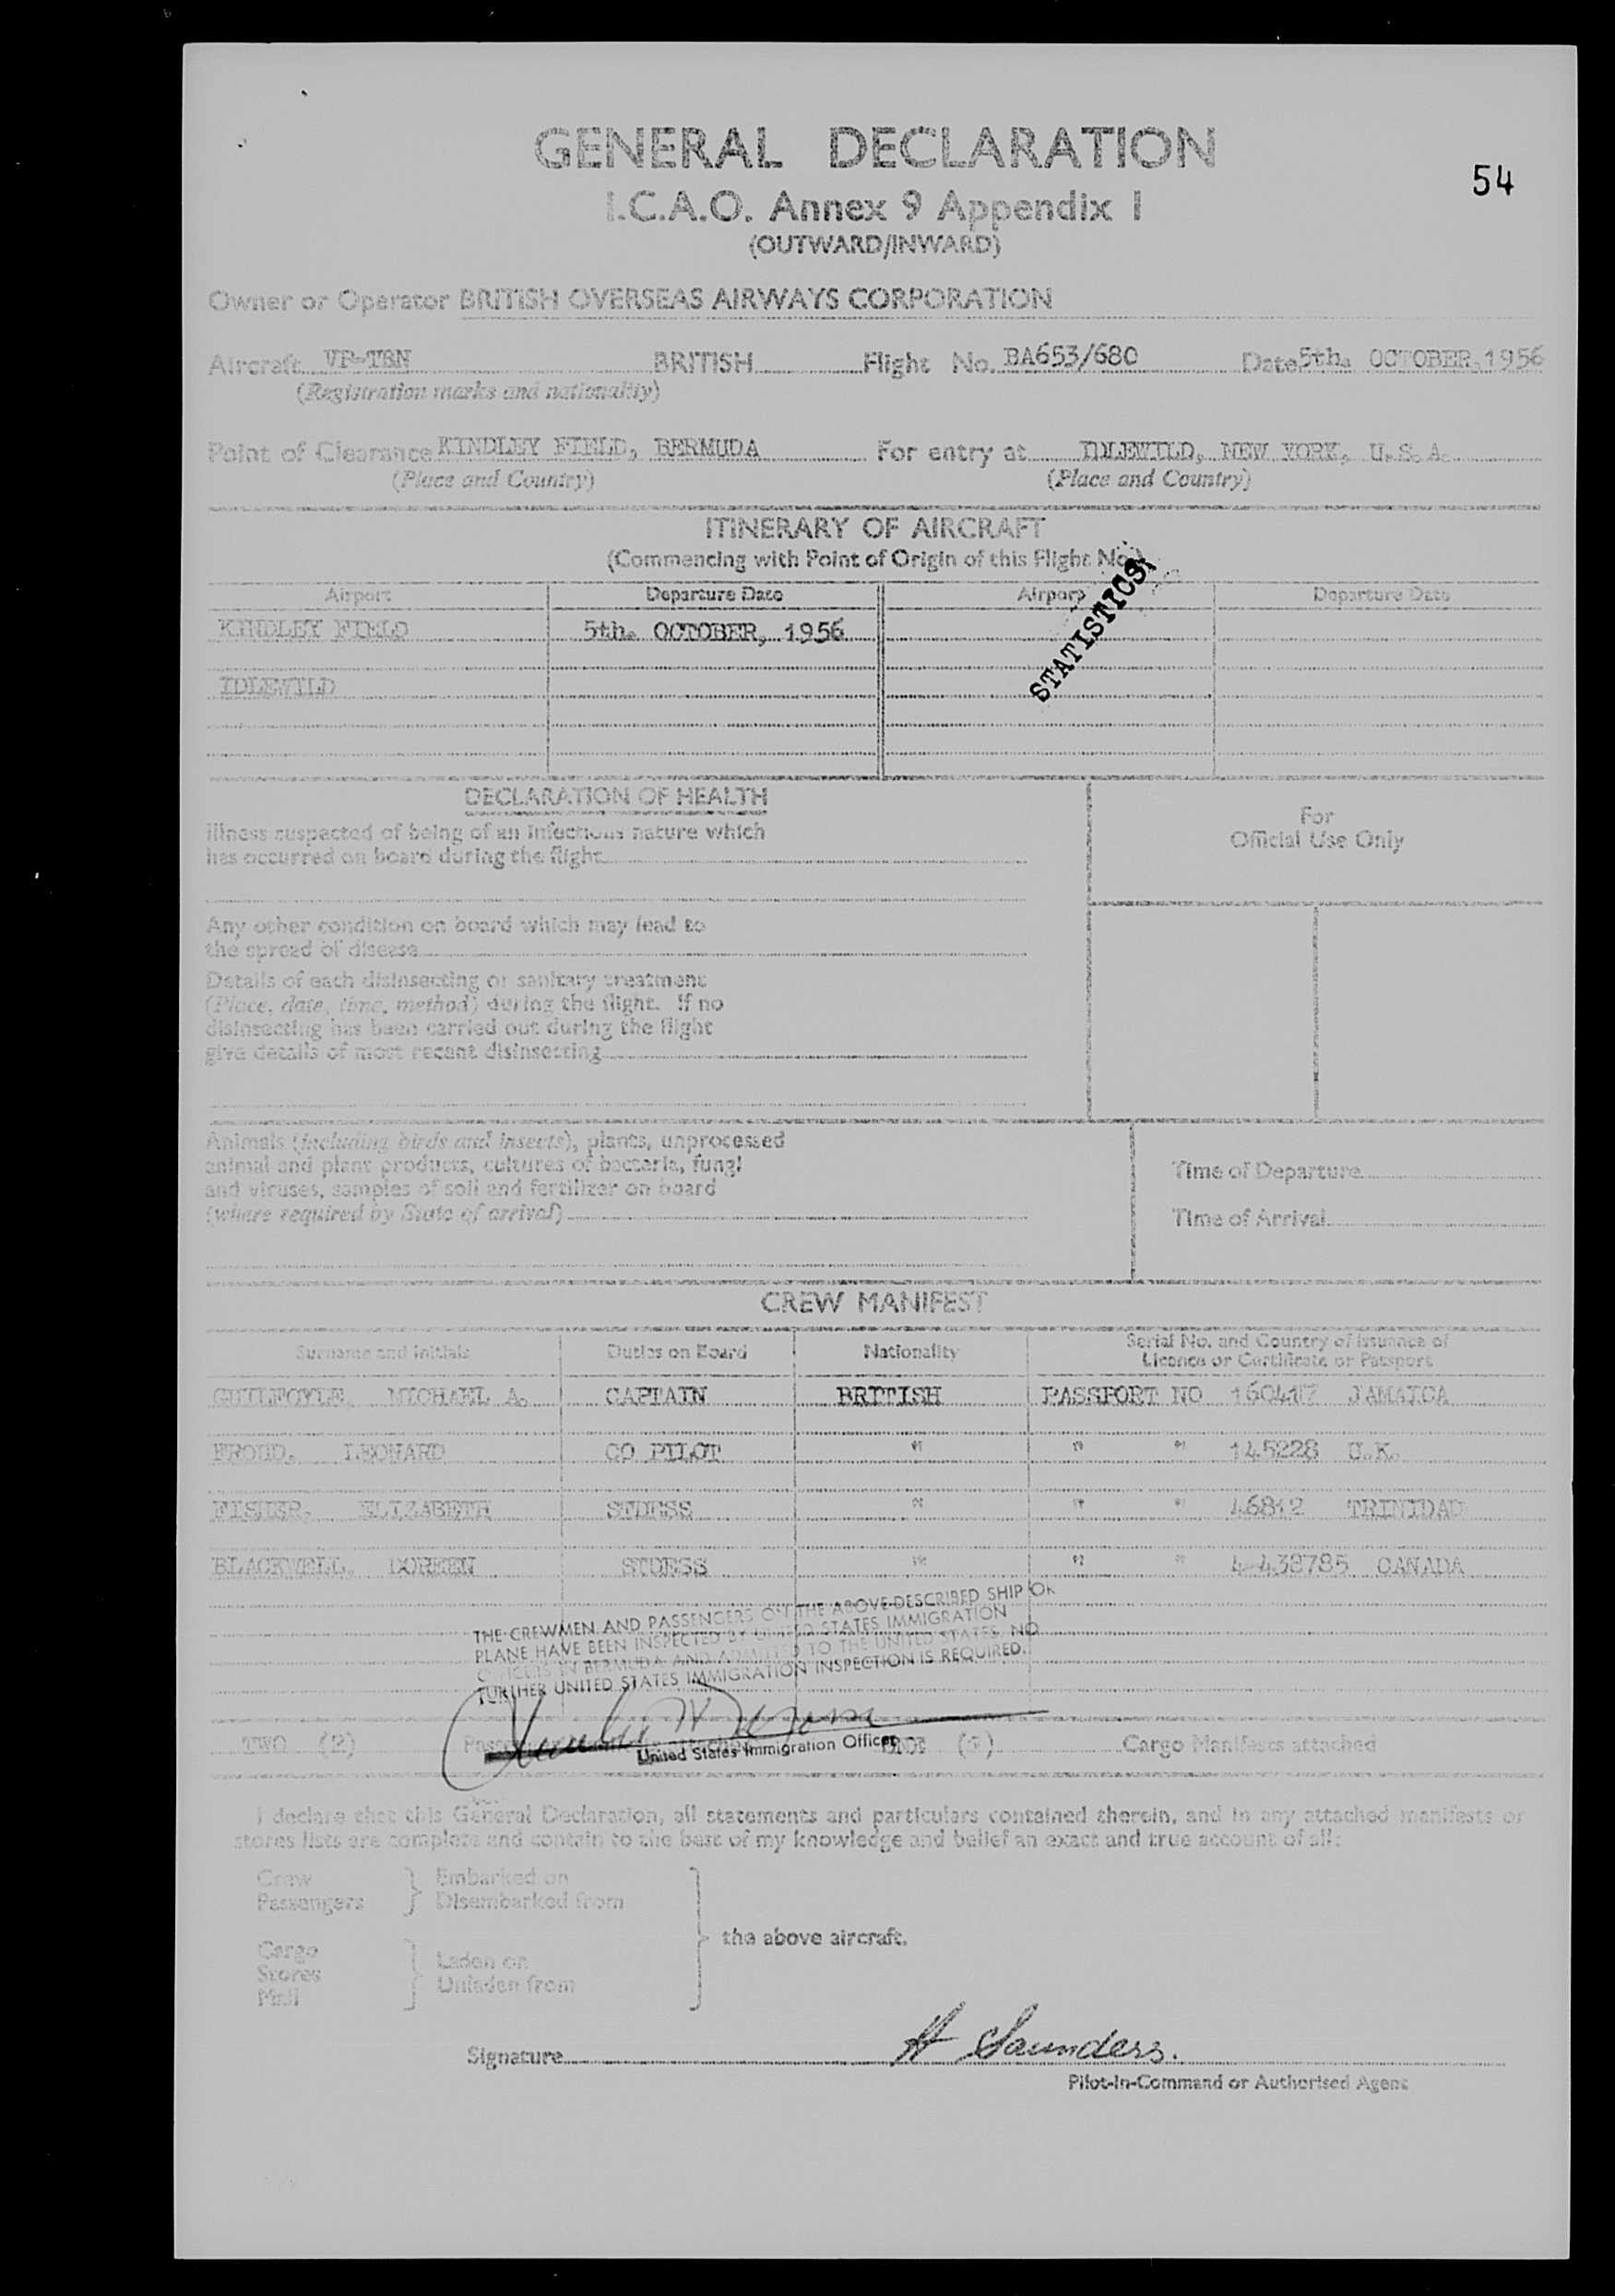 GENERAL DECLARATION
54
I.C.A.O. Annex 9 Appendix I
(OUTWARD/INWARD)
Owner or Operator BRITISH OVERSEAS AIRWAYS CORPORATION
Aircraft VP-TBN BRITISH Flight No. BA653/680 Date 5th. OCTOBER, 1956
(Registration marks and nationality)
Point of Clearance KINDLEY FIELD, BERMUDA For entry at IDLEWILD, NEW YORK, U.S.A.
(Place and Country) (Place and Country)
ITINERARY OF AIRCRAFT
(Commencing with Point of Origin of this Flight No.)
STATISTICS
Airport Departure Date Airport Departure Date
KINDLEY FIELD 5th. OCTOBER, 1956
IDLEWILD
DECLARATION OF HEALTH
For
Official Use Only
Illness suspected of being of an infectious nature which
has occurred on board during the flight
Any other condition on board which may lead to
the spread of disease
Details of each disinsecting or sanitary treatment
(Place, date, time, method) during the flight. If no
disinsecting has been carried out during the flight
give details of most recent disinsecting
Animals (including birds and insects), plants, unprocessed
animal and plant products, cultures of bacteria, fungi
and viruses, samples of soil and fertilizer on board
(where required by State of arrival)
Time of Departure
Time of Arrival
CREW MANIFEST
Surname and Initials Duties on Board Nationality Serial No. and Country of issuance of
Licence or Certificate or Passport
GUILFOYLE, MICHAEL A. CAPTAIN BRITISH PASSPORT NO 160417 JAMAICA
FROUD, LEONARD CO PILOT " " " 145228 U.K.
FISHER, ELIZABETH STDESS " " " 46812 TRINIDAD
BLACKWELL, DOREEN STDESS " " " 4-438785 CANADA
THE CREWMEN AND PASSENGERS ON THE ABOVE-DESCRIBED SHIP OR
PLANE HAVE BEEN INSPECTED BY UNITED STATES IMMIGRATION
OFFICERS IN BERMUDA AND ADMITTED TO THE UNITED STATES. NO
FURTHER UNITED STATES IMMIGRATION INSPECTION IS REQUIRED.
United States Immigration Officer
TWO (2) Cargo Manifests attached
I declare that this General Declaration, all statements and particulars contained therein, and in any attached manifests or
stores lists are complete and contain to the best of my knowledge and belief an exact and true account of all:
Crew
Passengers
Embarked on
Disembarked from
Cargo
Stores
Mail
Laden on
Unladen from
the above aircraft.
Signature H Saunders.
Pilot-in-Command or Authorised Agent